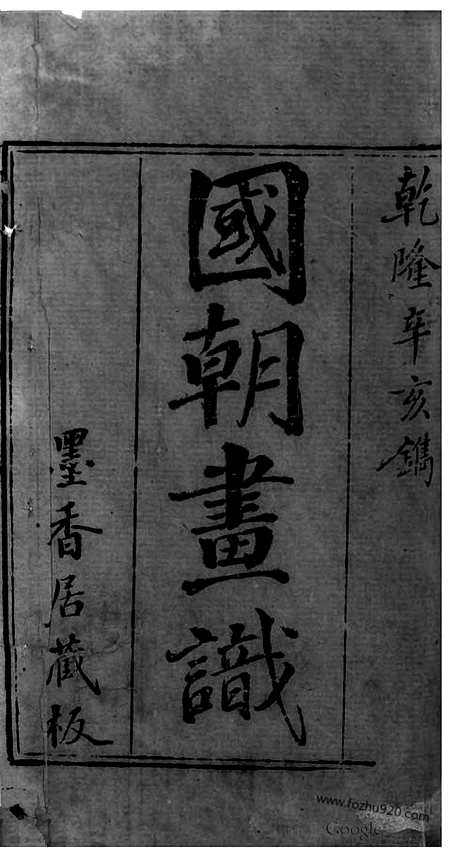 乾隆辛亥鐫
國朝畫識
墨香居藏板
www.fozhu920.com
Google